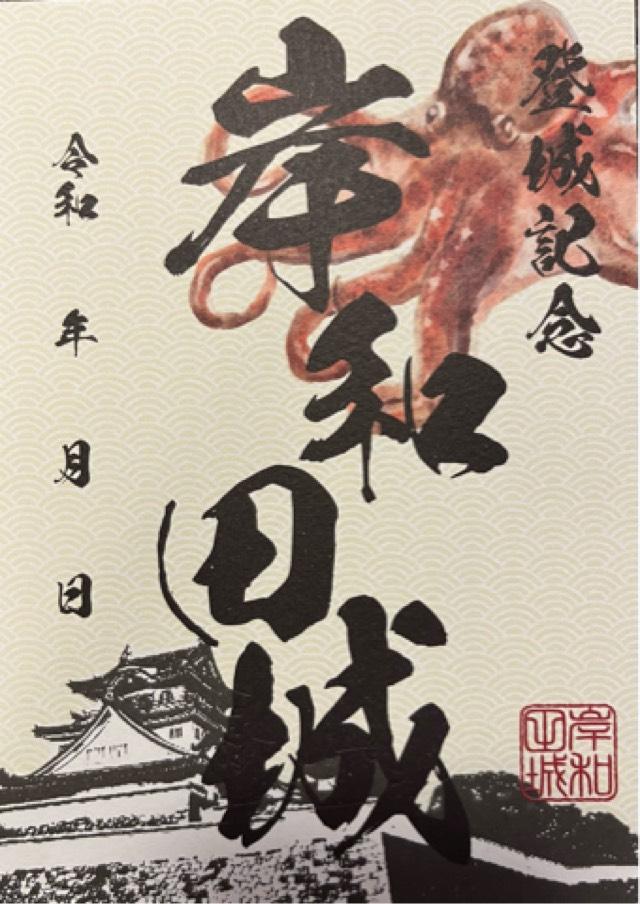 登城記念
岸和田城
令和 年 月 日
岸和田城